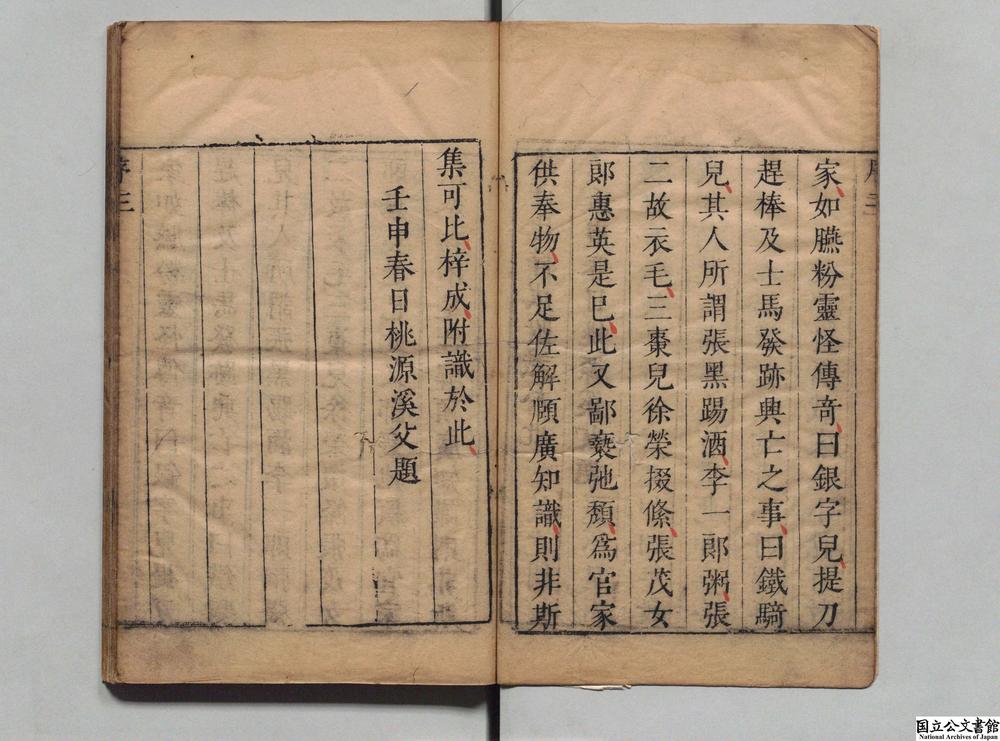 家如臙粉靈怪傳奇曰銀字兒提刀
趕棒及士馬發跡興亡之事曰鐵騎
兒其人所謂張黑踢酒李一郎粥張
二故衣毛三棗兒徐榮掇絛張茂女
郎惠英是已此又鄙褻弛頹爲官家
供奉物不足佐解頤廣知識則非斯
集可比梓成附識於此
壬申春日桃源溪父題
序三
国立公文書館
National Archives of Japan